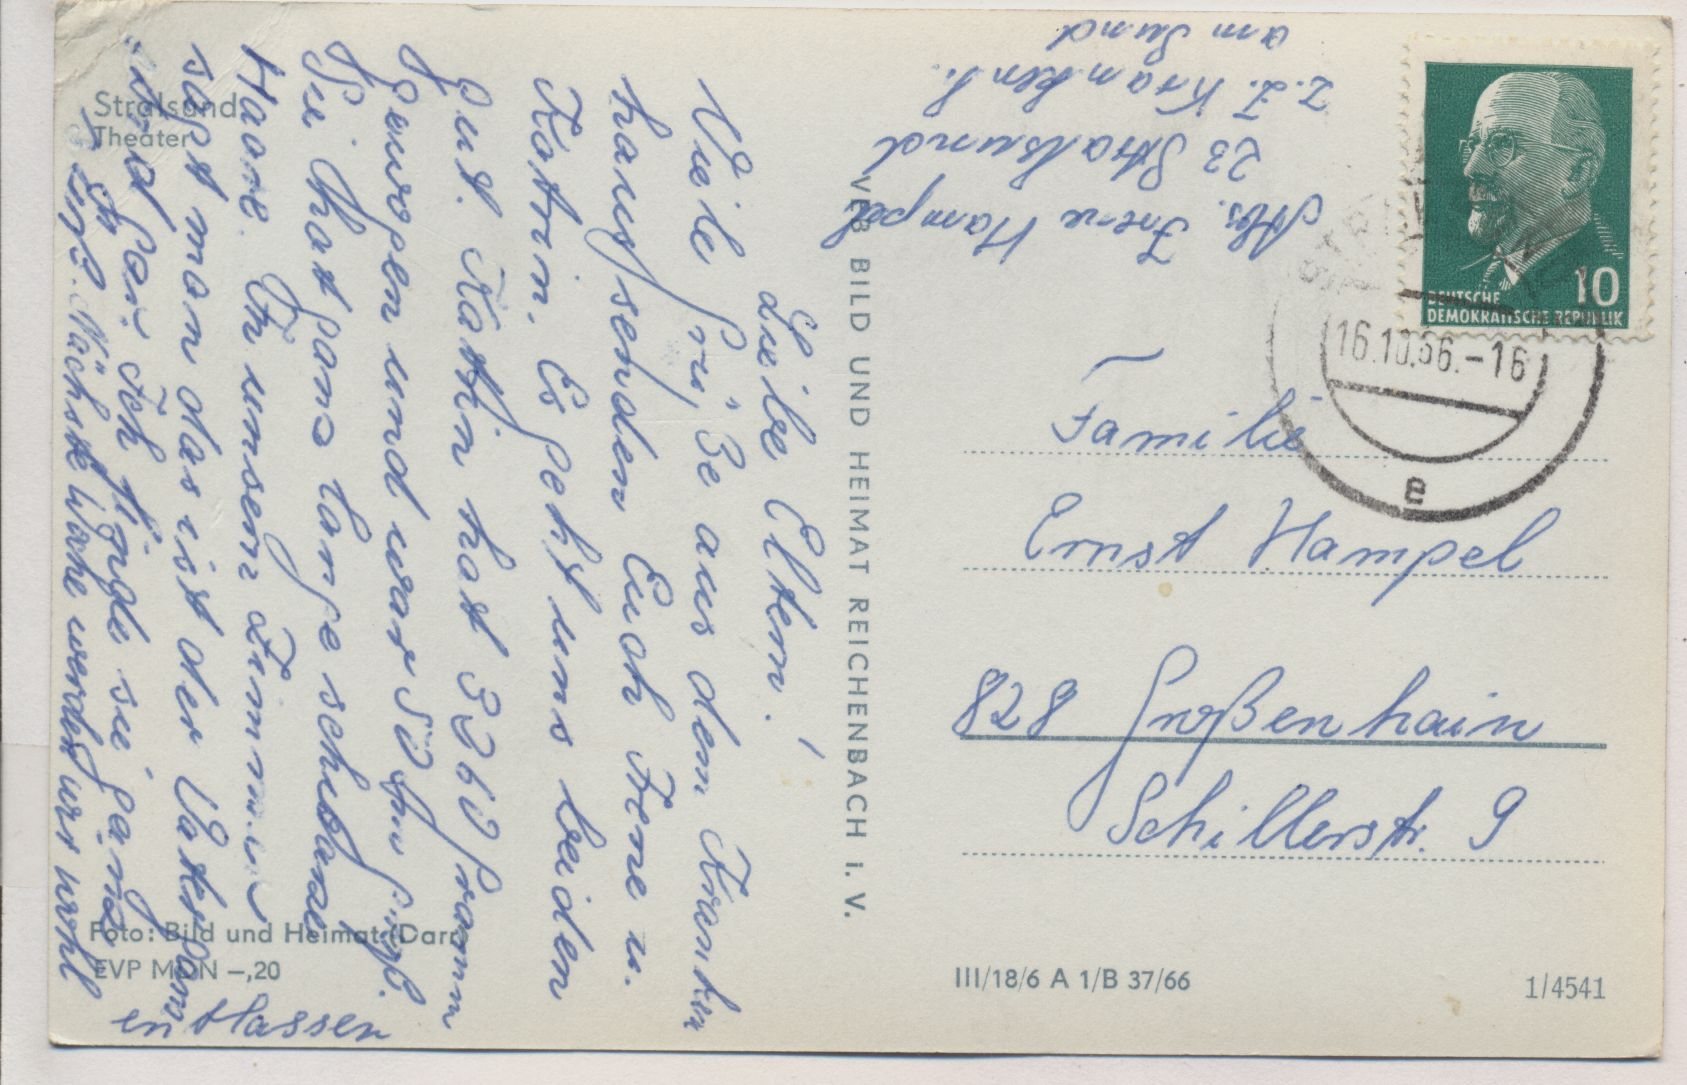 Stralsund
Theater
Liebe Eltern!
Viele Grüße aus dem Kranken
haus senden Euch Irene u.
Katrin. Es geht uns beiden
gut. Katrin hat 3260 gramm
gewogen und war 50 cm
Sie hat ganz lange schwarze
Haare. In unsern Zimmer
sagt man das ist der Vater ganz
und gar. Ich finde sie ganz
Nächste Woche werden wir wohl
entlassen
Foto: Bild und Heimat (Darr)
EVP MDN –,20
VEB BILD UND HEIMAT REICHENBACH i. V.
Abs. Irene Hampel
23 Stralsund
z. Z. Krankenh.
am Sund
10
DEUTSCHE
DEMOKRATISCHE REPUBLIK
STRALSUND
16.10.66.-16
e
Familie
Ernst Hampel
828 Großenhain
Schillerstr. 9
III/18/6 A 1/B 37/66
1/4541